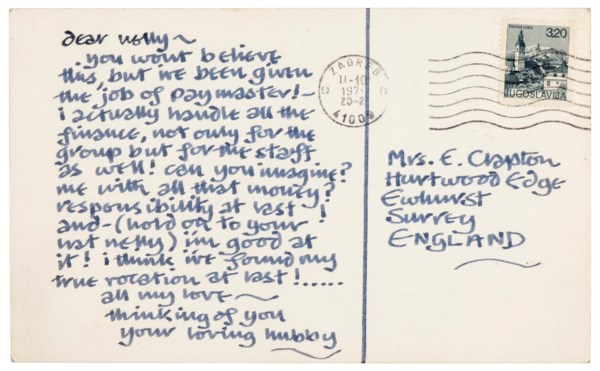 dear nelly~
you wont believe
this, but i've been given
the job of paymaster!~
i actually handle all the
finance, not only for the
group but for the staff
as well! can you imagine?
me with all that money?
responsibility at last!
and-(hold on to your
hat nelly) i'm good at
it! i think i've found my
true vocation at last!.....
all my love~
thinking of you
your loving hubby
ZAGREB
11-10
197
20-2
41000
3,20
JUGOSLAVIJA
Mrs. E. Clapton
Hurtwood Edge
Ewhurst
Surrey
ENGLAND